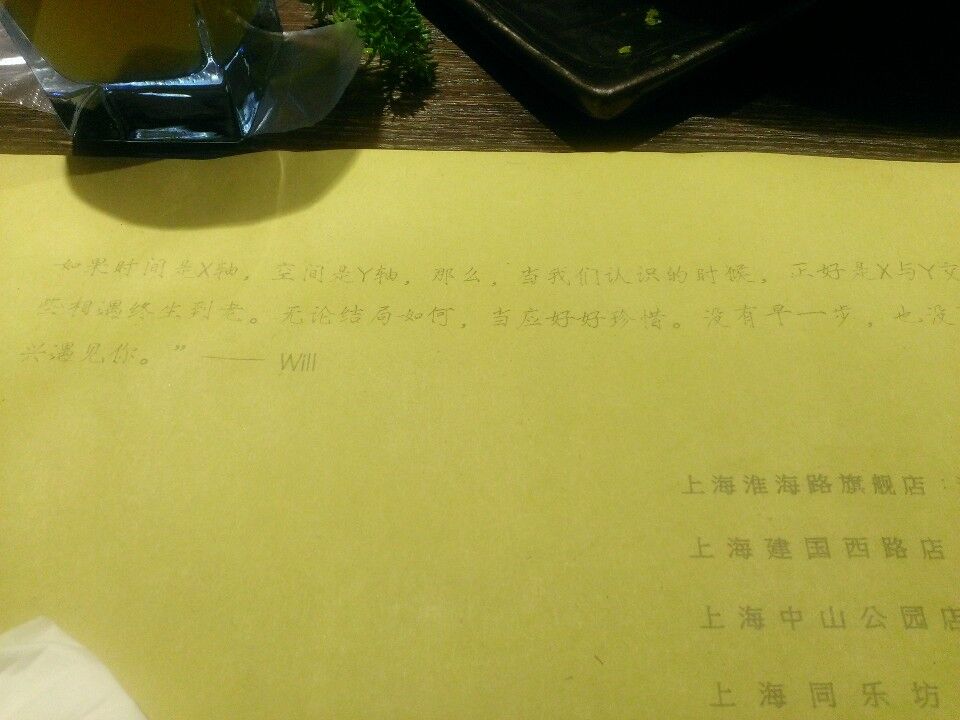 如果时间是X轴，空间是Y轴，那么，当我们认识的时候，正好是X与Y交
些相遇终生到老。无论结局如何，当应好好珍惜。没有早一步，也没
兴遇见你。” —— Will
上海淮海路旗舰店：
上海建国西路店
上海中山公园店
上海同乐坊